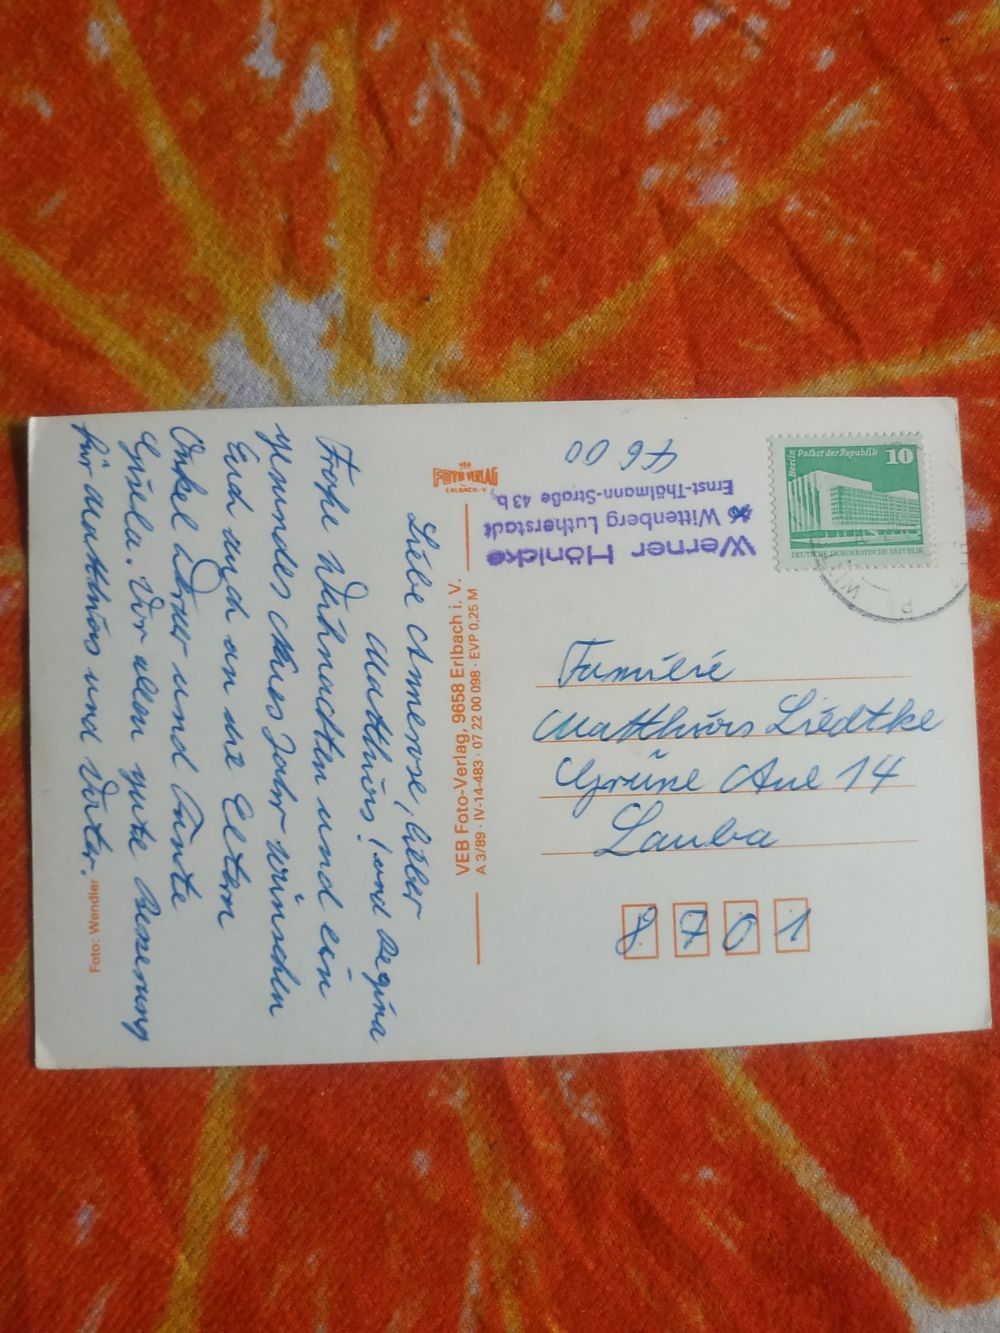 Liebe Annerose, lieber
Matthias! und Regina
Frohe Weihnachten und ein
gesundes Neues Jahr wünschen
Euch und an die Eltern
Onkel Werner und Tante
Gisela. Vor allem gute Besserung
für Matthias und Vater.
Foto: Wendler
FOTO VERLAG
ERLBACH/V.
VEB Foto-Verlag, 9658 Erlbach i. V.
A 3/89 · IV-14-483 · 07 22 00 098 · EVP 0,25 M
Werner Hönicke
Wittenberg Lutherstadt
Ernst-Thälmann-Straße 43 b
4600
Berlin Palast der Republik 10
DEUTSCHE DEMOKRATISCHE REPUBLIK
Familie
Matthias Liedtke
Grüne Aue 14
Lauba
8701